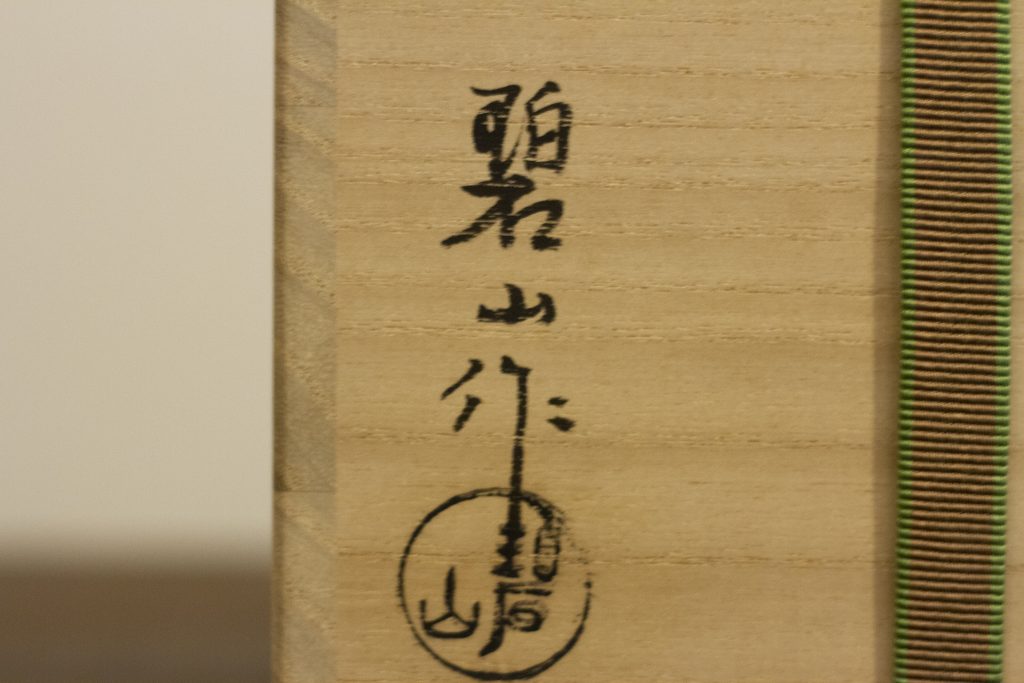 碧山作
碧山